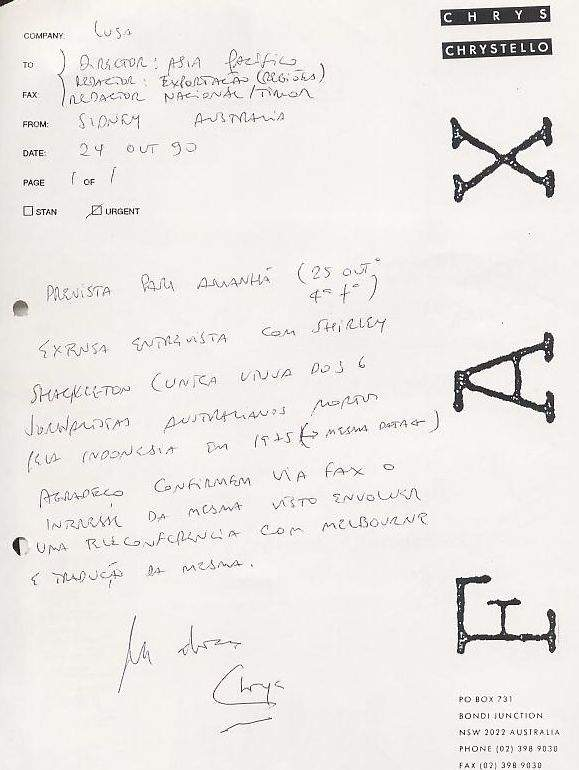 CHRYS
CHRYSTELLO
COMPANY: LUSA
TO DIRECTOR: ASIA PACÍFICO
REDACTOR: EXPORTAÇÃO (REGIÕES)
FAX: REDACTOR NACIONAL/TIMOR
FROM: SIDNEY AUSTRALIA
DATE: 24 OUT 90
PAGE 1 OF 1
STAN URGENT
PREVISTA PARA AMANHÃ (25 OUTº
4ª fª)
EXTENSA ENTREVISTA COM SHIRLEY
SHACKLETON (UNICA VIUVA DOS 6
JORNALISTAS AUSTRALIANOS MORTOS
PELA INDONESIA EM 1975 (→ MESMA DATA ←)
AGRADEÇO CONFIRMEM VIA FAX O
INTERESSE DA MESMA VISTO ENVOLVER
UMA TELECONFERENCIA COM MELBOURNE
E TRADUÇÃO DA MESMA.
Chrys
FAX
PO BOX 731
BONDI JUNCTION
NSW 2022 AUSTRALIA
PHONE (02) 398 9030
FAX (02) 398 9030